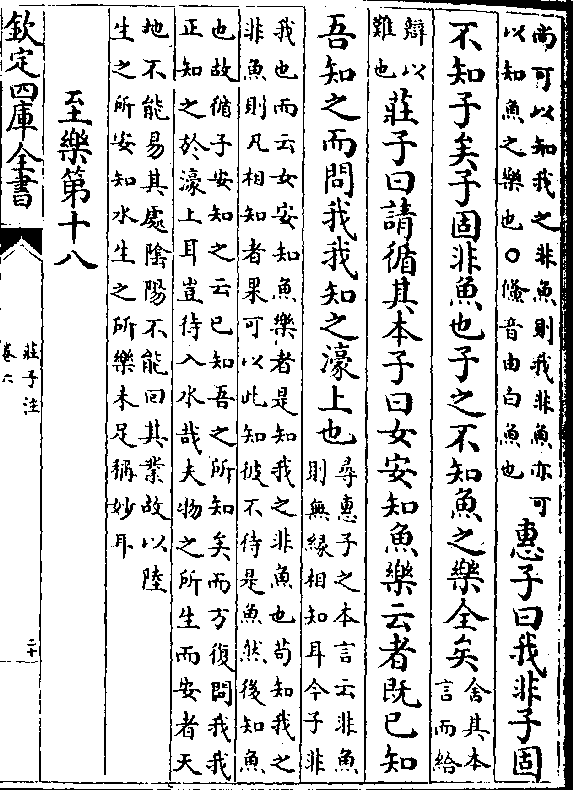 尚可以知我之非魚則我非魚亦可
以知魚之樂也○鯈音由白魚也
惠子曰我非子固
不知子矣子固非魚也子之不知魚之樂全矣
舍其本
言而給
辯以
難也
莊子曰請循其本子曰女安知魚樂云者既已知
吾知之而問我我知之濠上也
尋惠子之本言云非魚
則無縁相知耳今子非
我也而云女安知魚樂者是知我之非魚也茍知我之
非魚則凡相知者果可以此知彼不待是魚然後知魚
也故循子安知之云已知吾之所知矣而方復問我我
正知之於濠上耳豈待入水哉夫物之所生而安者天
地不能易其處陰陽不能回其業故以陸
生之所安知水生之所樂未足稱妙耳
至樂第十八
欽定四庫全書
莊子注
卷六
二十